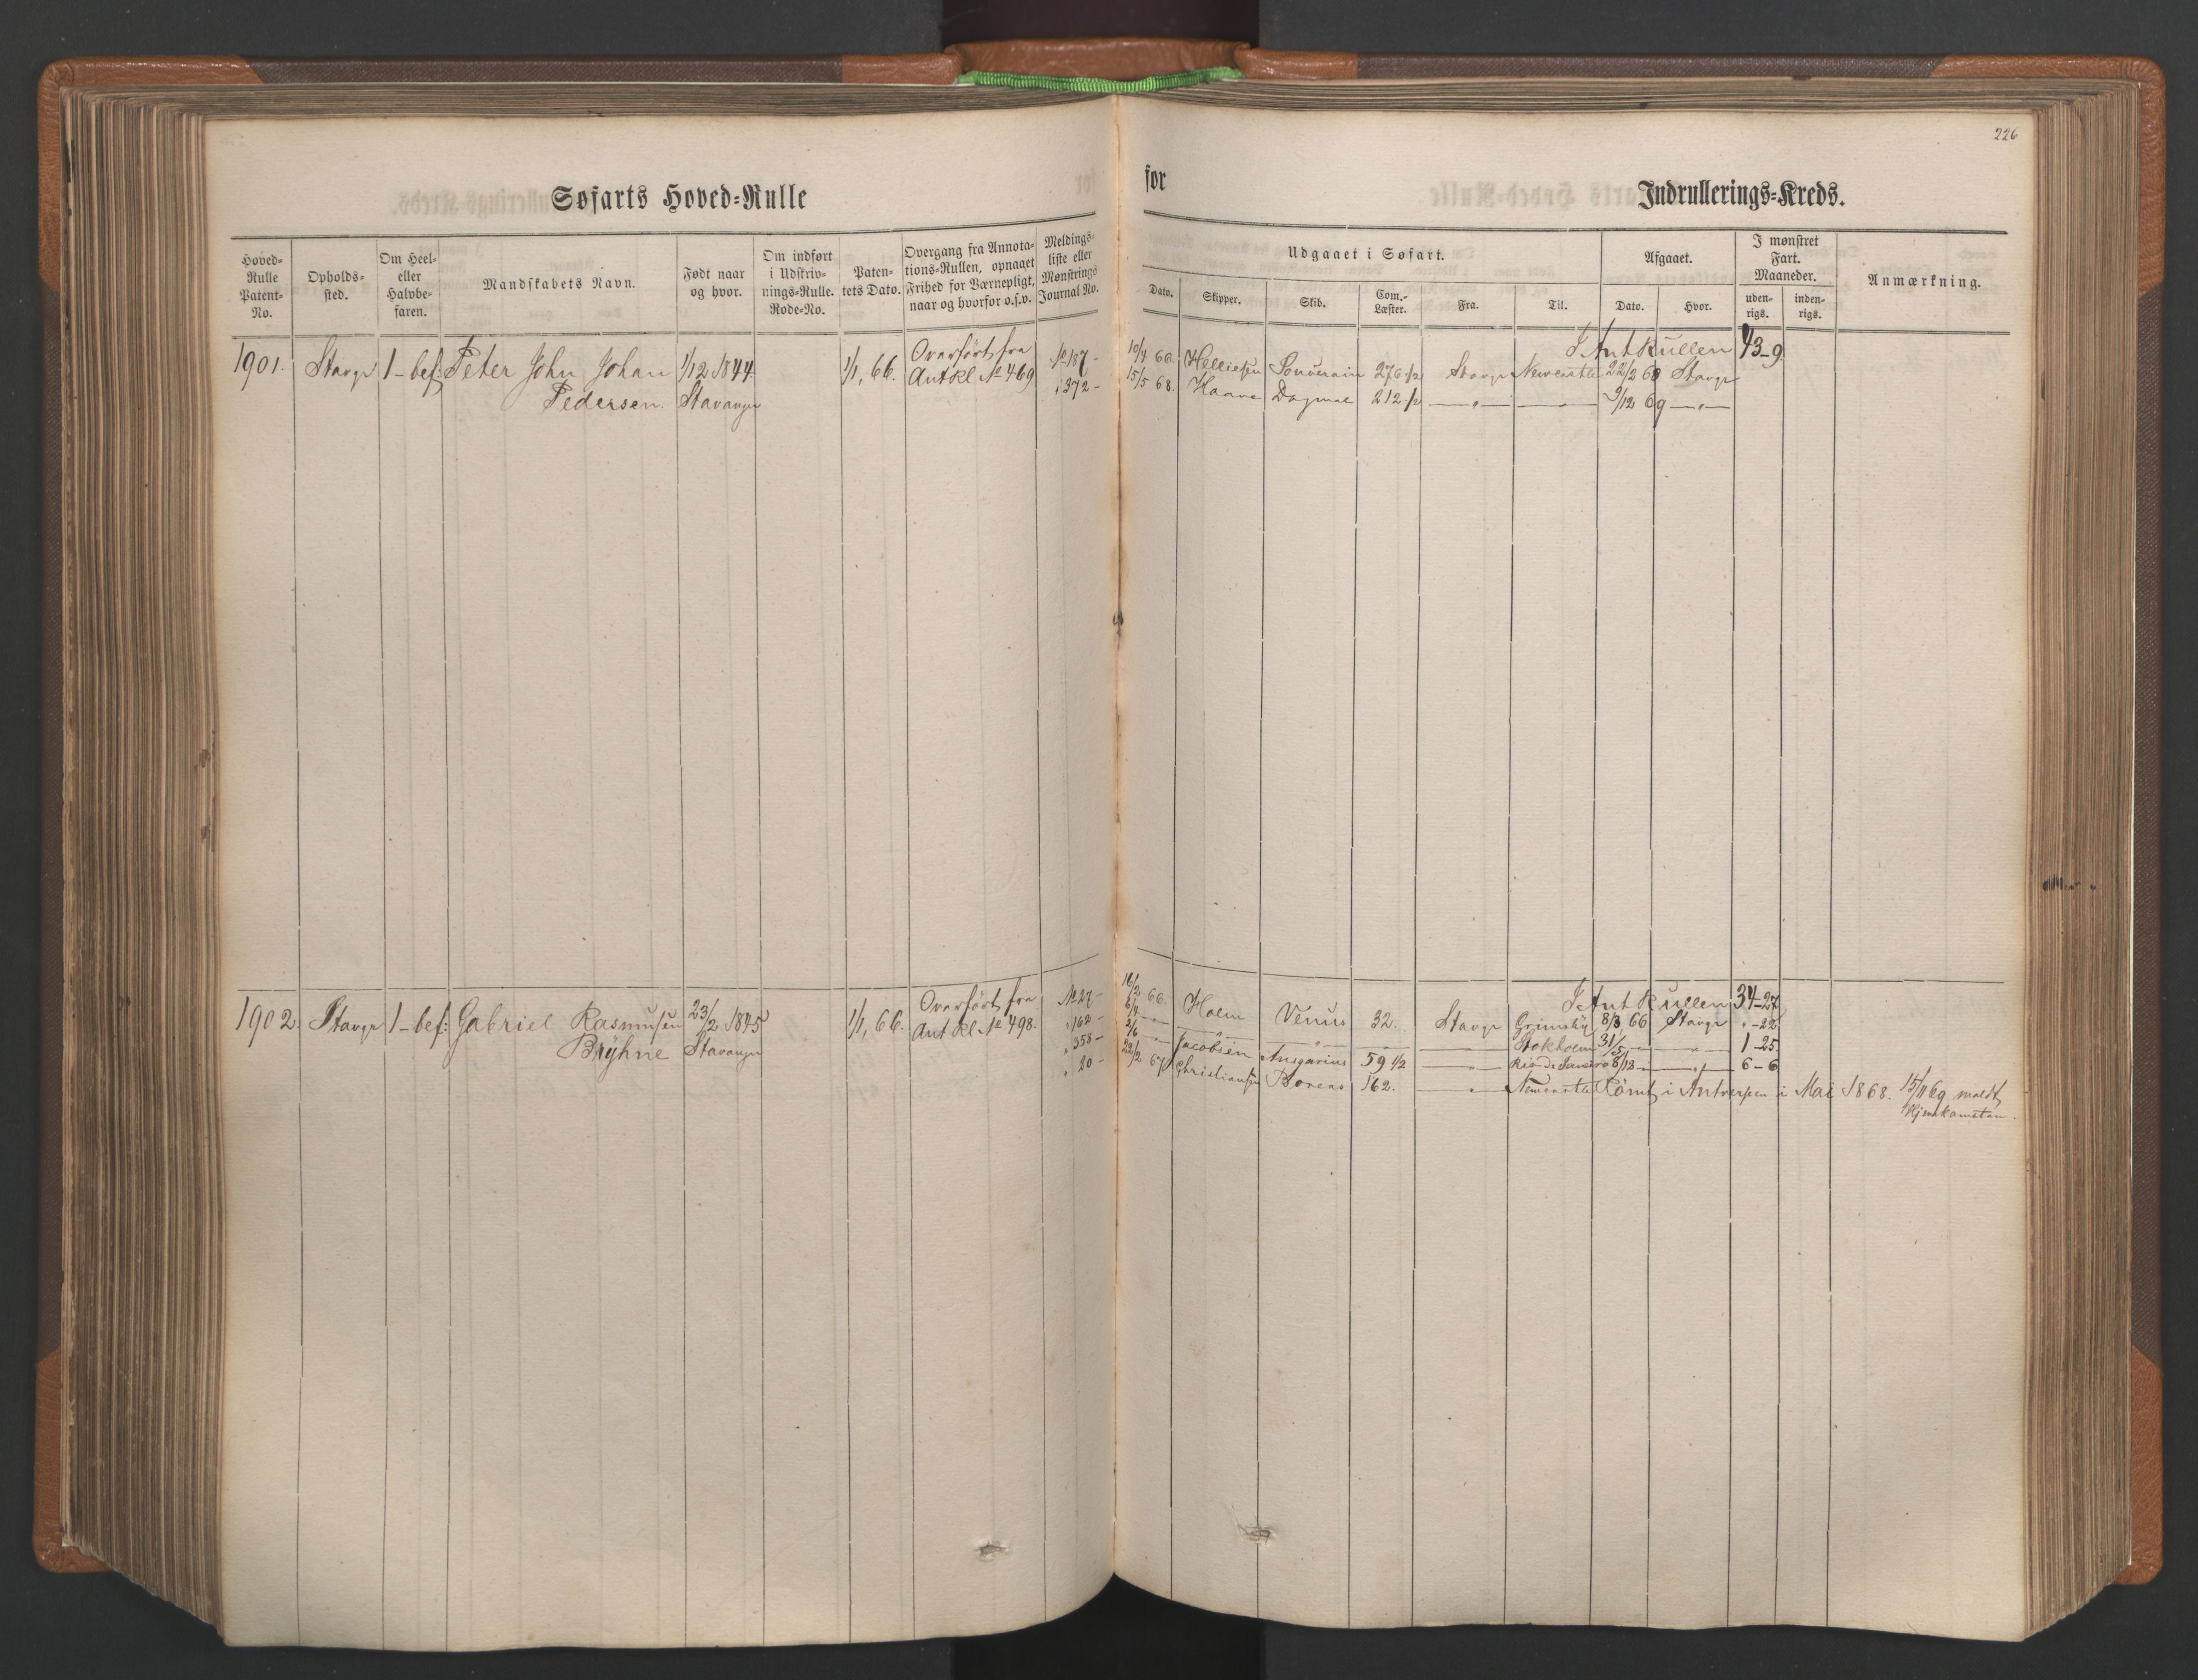 226
Søfarts Hoved-Rulle
for
Indrullerings-Kreds.
Hoved-
Rulle
Patent-
No.
Opholds-
sted.
Om Heel-
eller
Halvbe-
faren.
Mandskabets Navn.
Født naar
og hvor.
Om indført
i Udskriv-
nings-Rulle.
Rode-No.
Paten-
tets Dato.
Overgang fra Annota-
tions-Rullen, opnaaet
Frihed for Værnepligt,
naar og hvorfor o.s.v.
Meldings-
liste eller
Mønstrings
Journal No.
Udgaaet i Søfart.
Dato.
Skipper.
Skib.
Com.-
Læster.
Fra.
Til.
Afgaaet.
Dato.
Hvor.
I mønstret
Fart.
Maaneder.
uden-
rigs.
inden-
rigs.
Anmærkning.
1901. Stavgr 1-bef: Peter John Johan 1/12 1844. 1/1, 66. Overført fra No 187-
Pedersen. Stavanger Ant Rl. No 469 " 372-
I Ant Rullen 43-9
10/4 66. Helliesen Souverain 276 1/2 Stavgr Newcastle 22/2 68 Stavgr
15/5 68. Haave Dagmar 212 1/2 —"— — 9/12 69 —"—
1902. Stavgr 1-bef: Gabriel Rasmusen 23/2 1845 1/1, 66. Overført fra No 27-
Brÿhne Stavanger Ant Rl. No 498. " 162-
" 358-
" 20-
I Ant Rullen 34-27
16/2 66. Holm Venus 32. Stavgr Grimsby 8/3 66 Stavgr " -22
6/4 —"— —"— —"— — —"— Stokholm 31/5 — —"— 1-25
2/6 —"— Jacobsen Ansgarius 59 1/2 —"— Rio de Janeiro 8/12 — —"— 6-6
22/2 67 Christiansen Boreas 162. —"— Newcastle Rømt i Antverpen i Mai 1868. 15/11 69 meldt
Hjemkomsten.